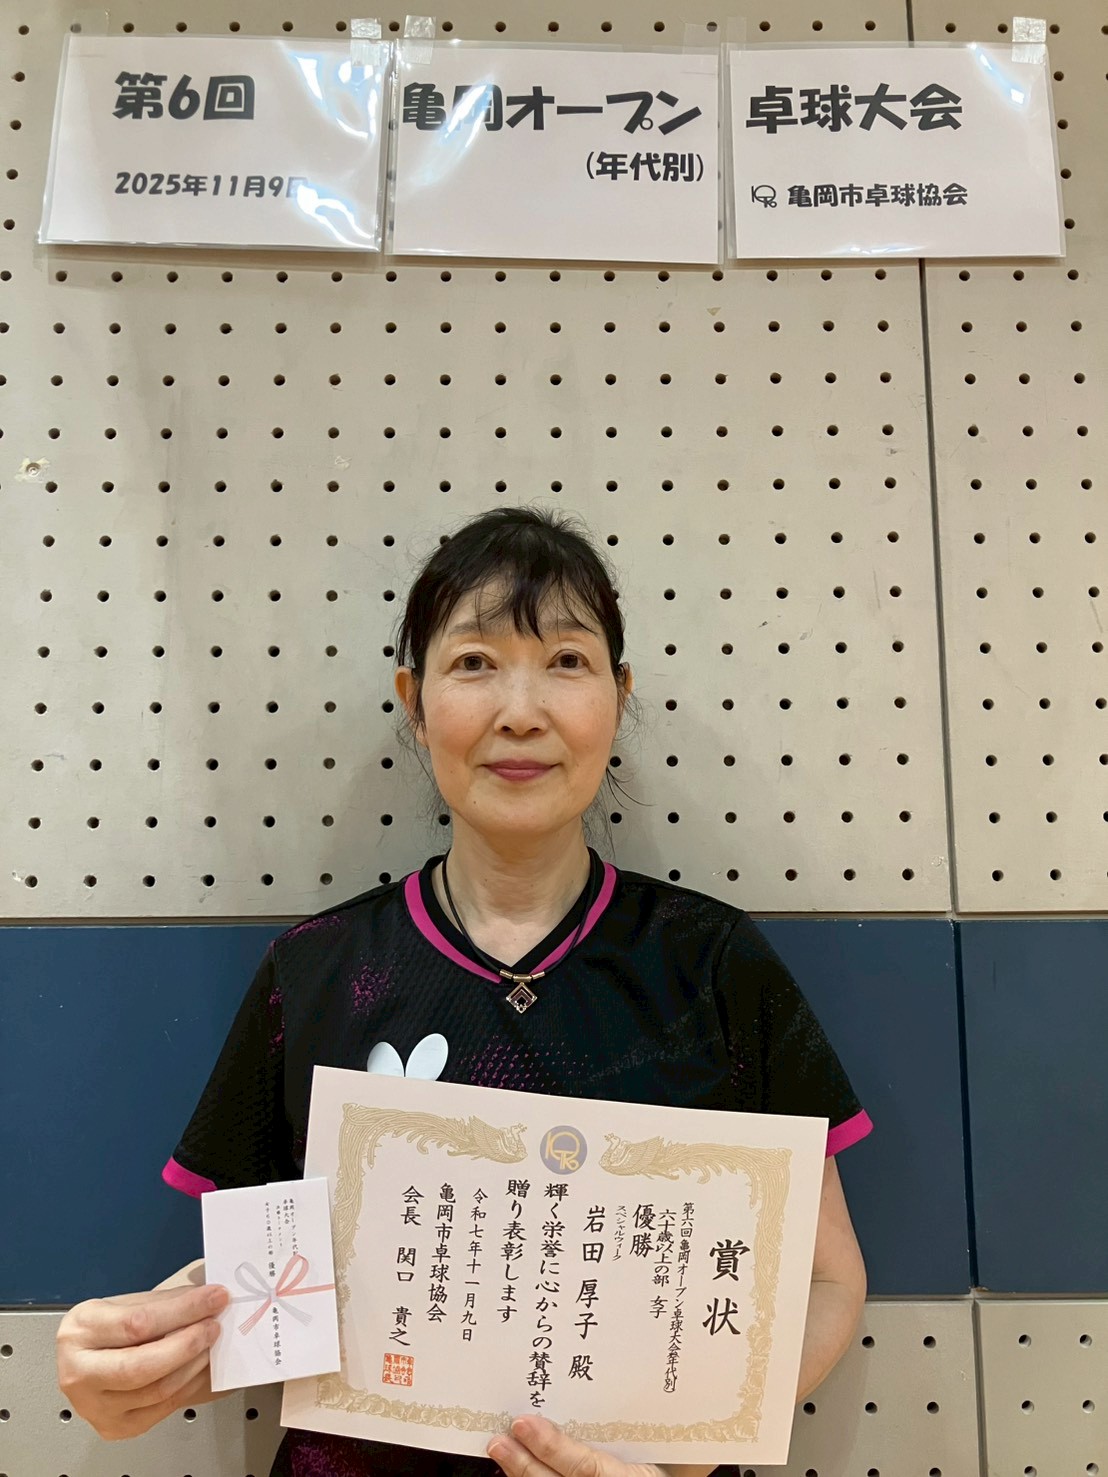 第6回
2025年11月9日
亀岡オープン
(年代別)
卓球大会
亀岡市卓球協会
賞状
第六回亀岡オープン卓球大会(年代別)
六十歳以上の部 女子
優勝
スペシャルウィーク
岩田 厚子 殿
輝く栄誉に心からの賛辞を
贈り表彰します
令和七年十一月九日
亀岡市卓球協会
会長 関口 貴之
卓球大会
優勝
亀岡市卓球協会